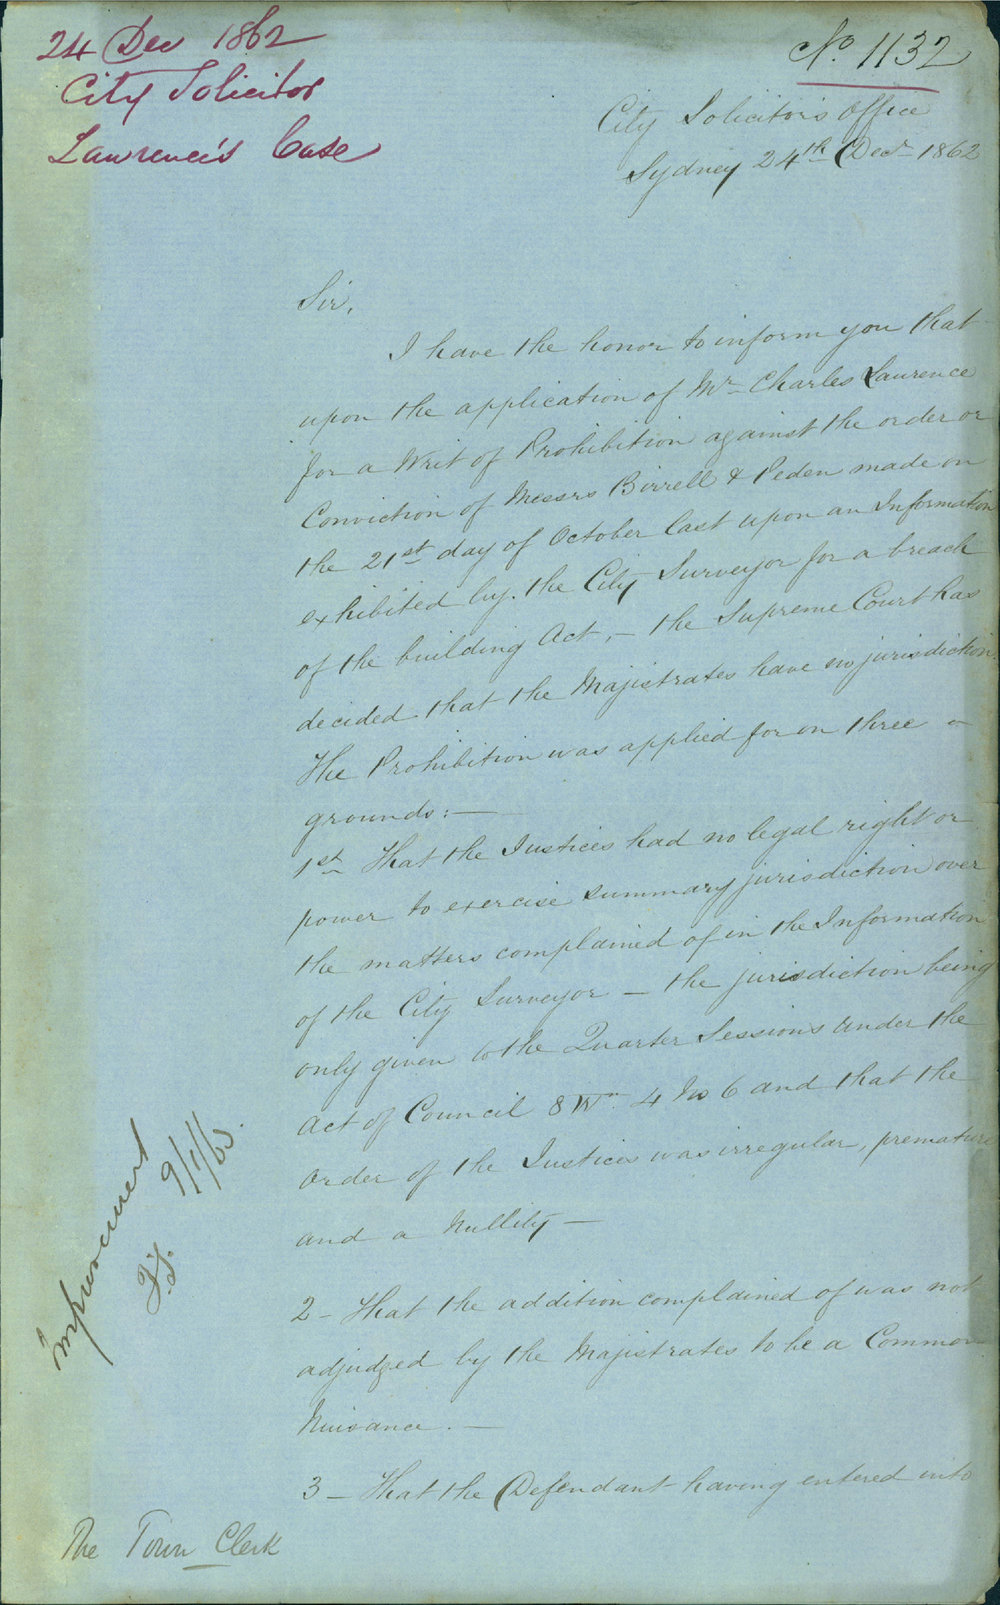 24 Dec 1862
City Solicitor
Lawrence's Case
No. 1132
City Solicitor's Office
Sydney 24th Decr 1862
Sir,
I have the honor to inform you that
upon the application of Mr Charles Lawrence
for a Writ of Prohibition against the order or
Conviction of Messrs Birrell & Peden made on
the 21st day of October last upon an Information
exhibited by the City Surveyor for a breach
of the building Act, – the Supreme Court has
decided that the Majistrates have no jurisdiction.
The Prohibition was applied for on three –
grounds: –
1st That the Justices had no legal right or
power to exercise summary jurisdiction over
the matters complained of in the Information
of the City Surveyor – the jurisdiction being
only given to the Quarter Sessions under the
Act of Council 8 Wm 4 No 6 and that the
Order of the Justices was irregular, premature
and a Nullity –
2 – That the addition complained of was not
adjudged by the Majistrates to be a Common
Nuisance. –
3 – That the Defendant having entered into
Improvement
9/1/63.
The Town Clerk